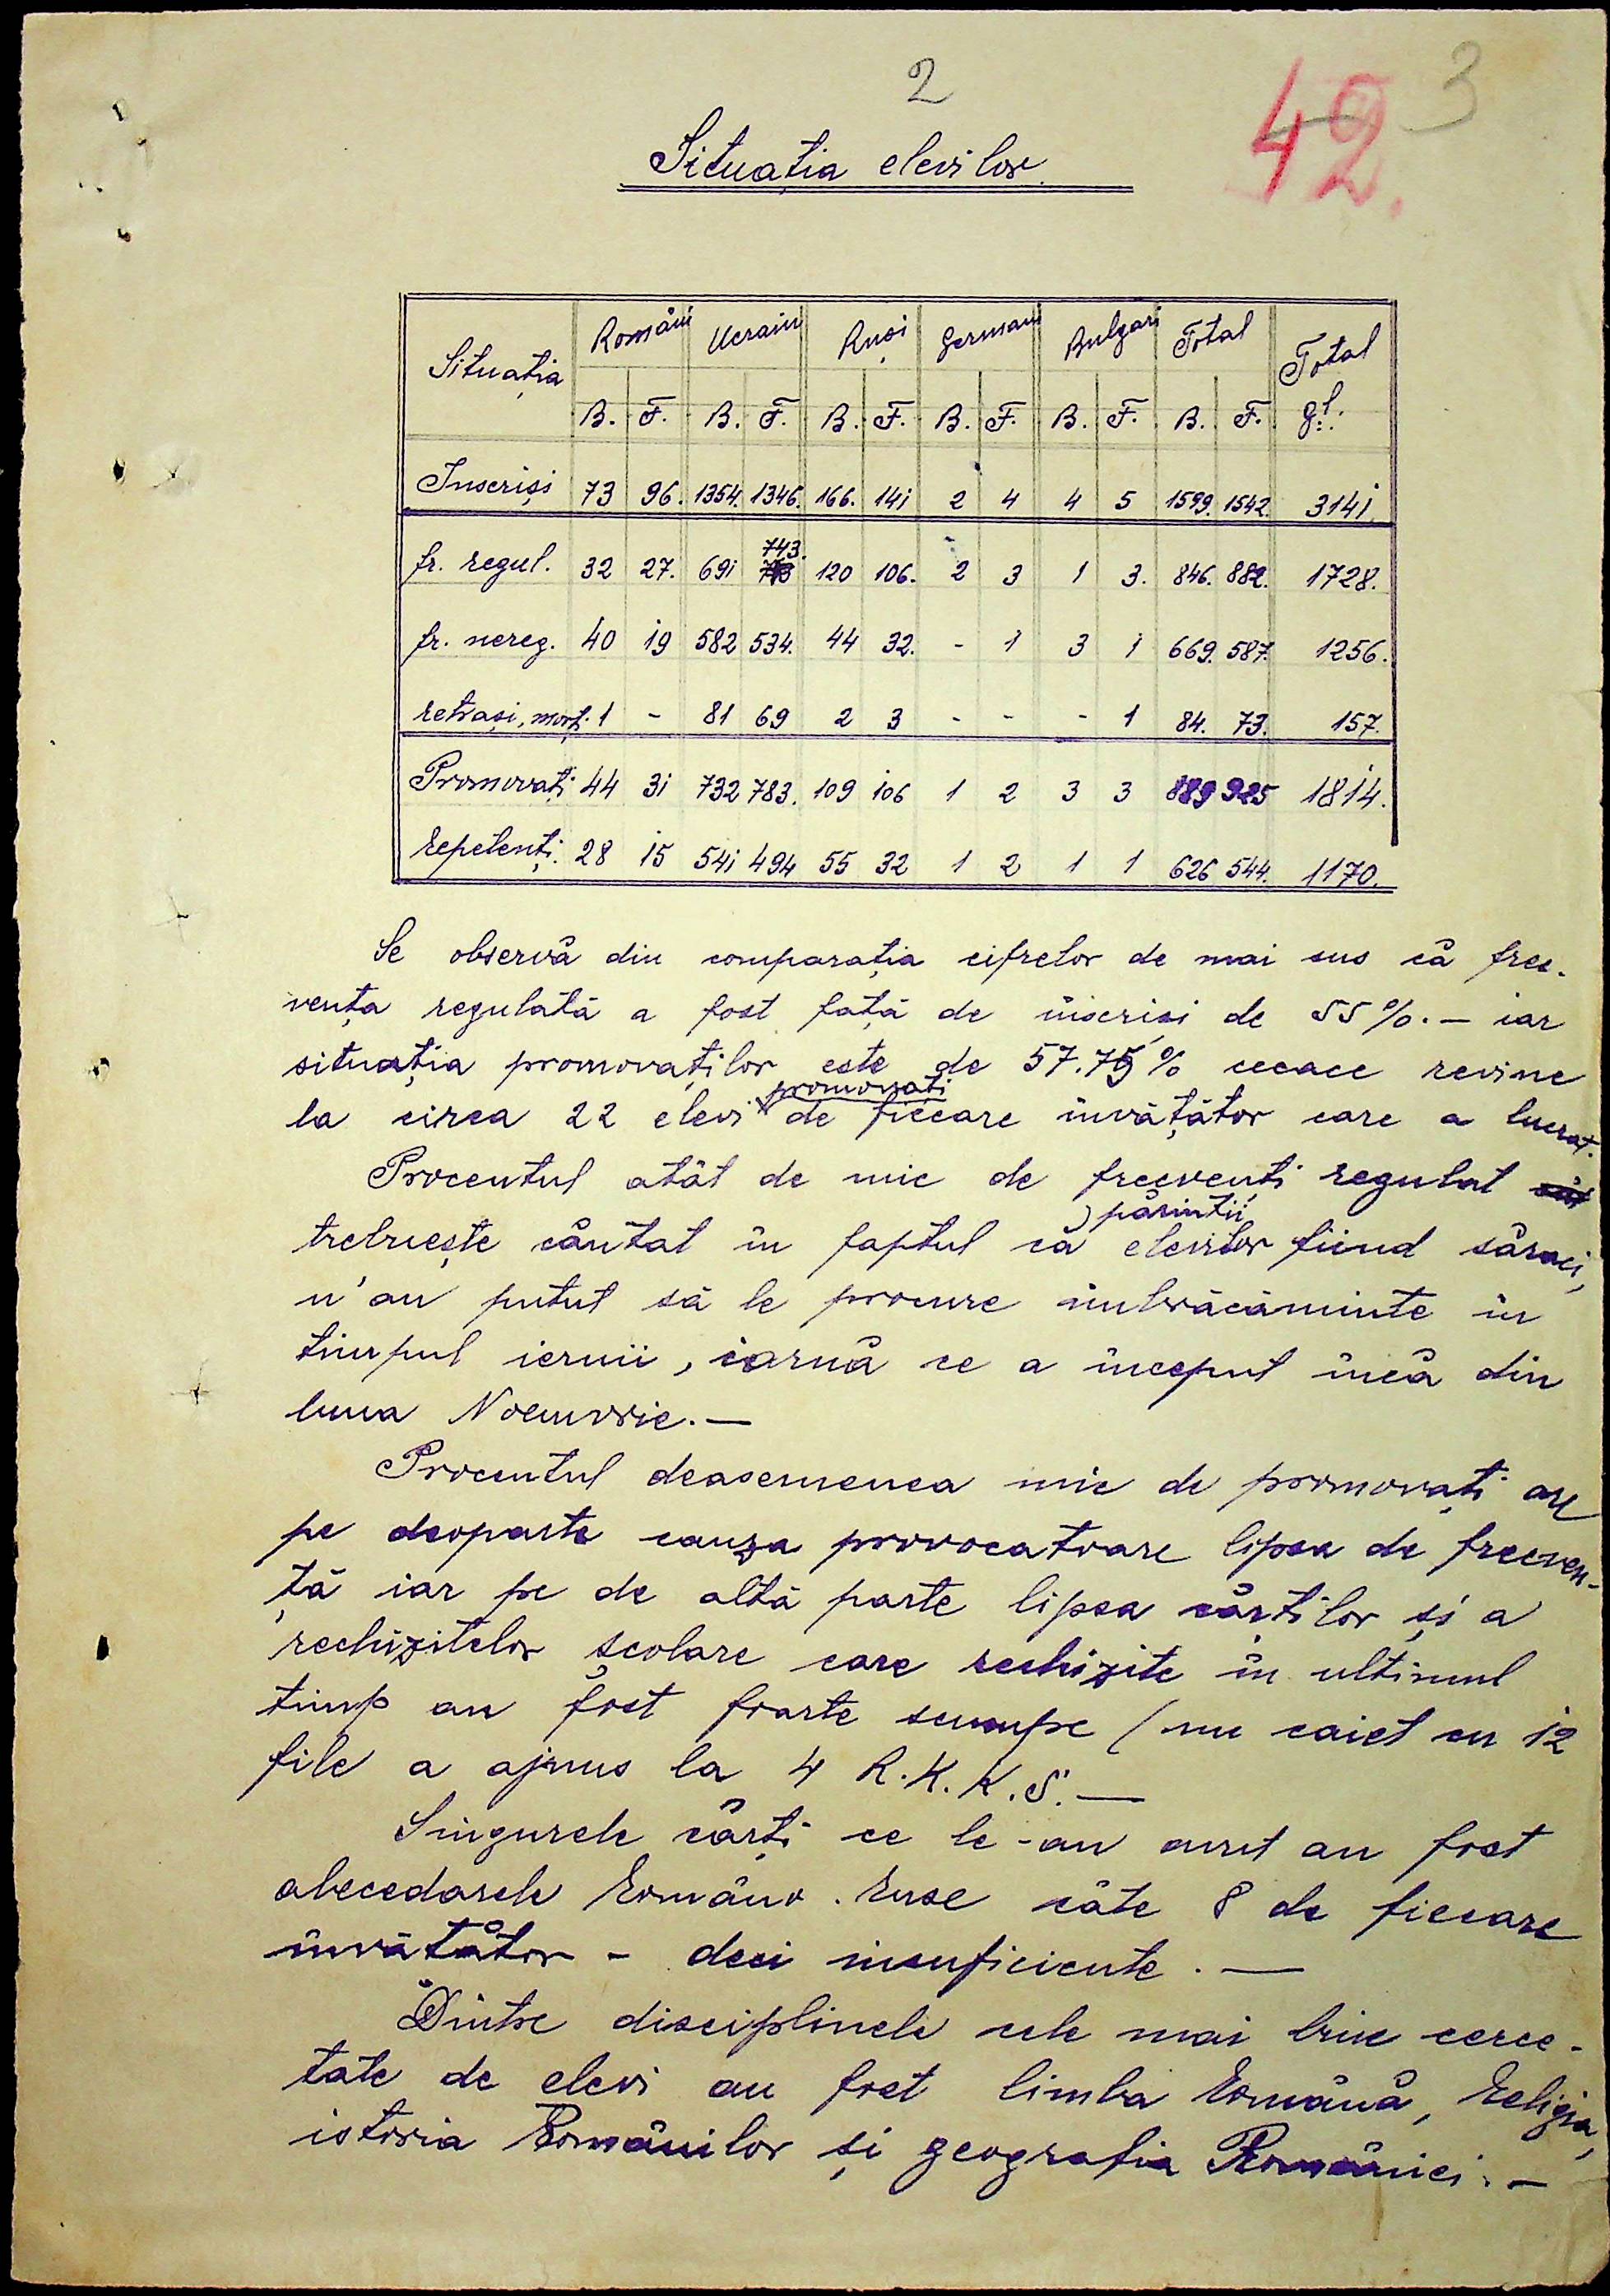 2
42. 3
Situația elevilor
Situația Români Ucrain Ruși Germani Bulgari Total Total gl.
B. F. B. F. B. F. B. F. B. F. B. F.
Inscriși 73 96. 1354. 1346. 166. 141 2 4 4 5 1599. 1542. 3141.
743.
fr. regul. 32 27. 691 120 106. 2 3 1 3. 846. 882. 1728.
fr. nereg. 40 19 582 534. 44 32. - 1 3 1 669. 587. 1256.
retrași, morți. 1 - 81 69 2 3 - - - 1 84. 73. 157.
Promovați 44 31 732 783. 109 106 1 2 3 3 889 925 1814.
repetenți. 28 15 541 494 55 32 1 2 1 1 626 544. 1170.
Se observă din comparația cifrelor de mai sus că frec-
vența regulată a fost față de înscrisi de 55%. — iar
situația promovaților este de 57.75% ceeace revine
promovati
la circa 22 elevi de fiecare învățător care a lucrat.
Procentul atât de mic de frecvenți regulat
părintii
trebuește căutat în faptul că elevilor fiind săraci,
n'au putut să le procure îmbrăcăminte în
timpul iernii, iarnă ce a început încă din
luna Noembrie. —
Procentul deasemenea mic de promovați are
pe deoparte cauza provocatoare lipsa de frecven-
ță iar pe de altă parte lipsa cărtilor și a
rechizitelor scolare care rechizite în ultimul
timp au fost foarte scumpe (un caiet cu 12
file a ajuns la 4 R.K.K.S. —
Singurele cărți ce le-au avut au fost
abecedarele Româno. ruse câte 8 de fiecare
învătător - deci insuficiente. —
Dintre disciplinele cele mai bine cerce-
tate de elevi au fost limba Română, Religia,
istoria Românilor și geografia României. —